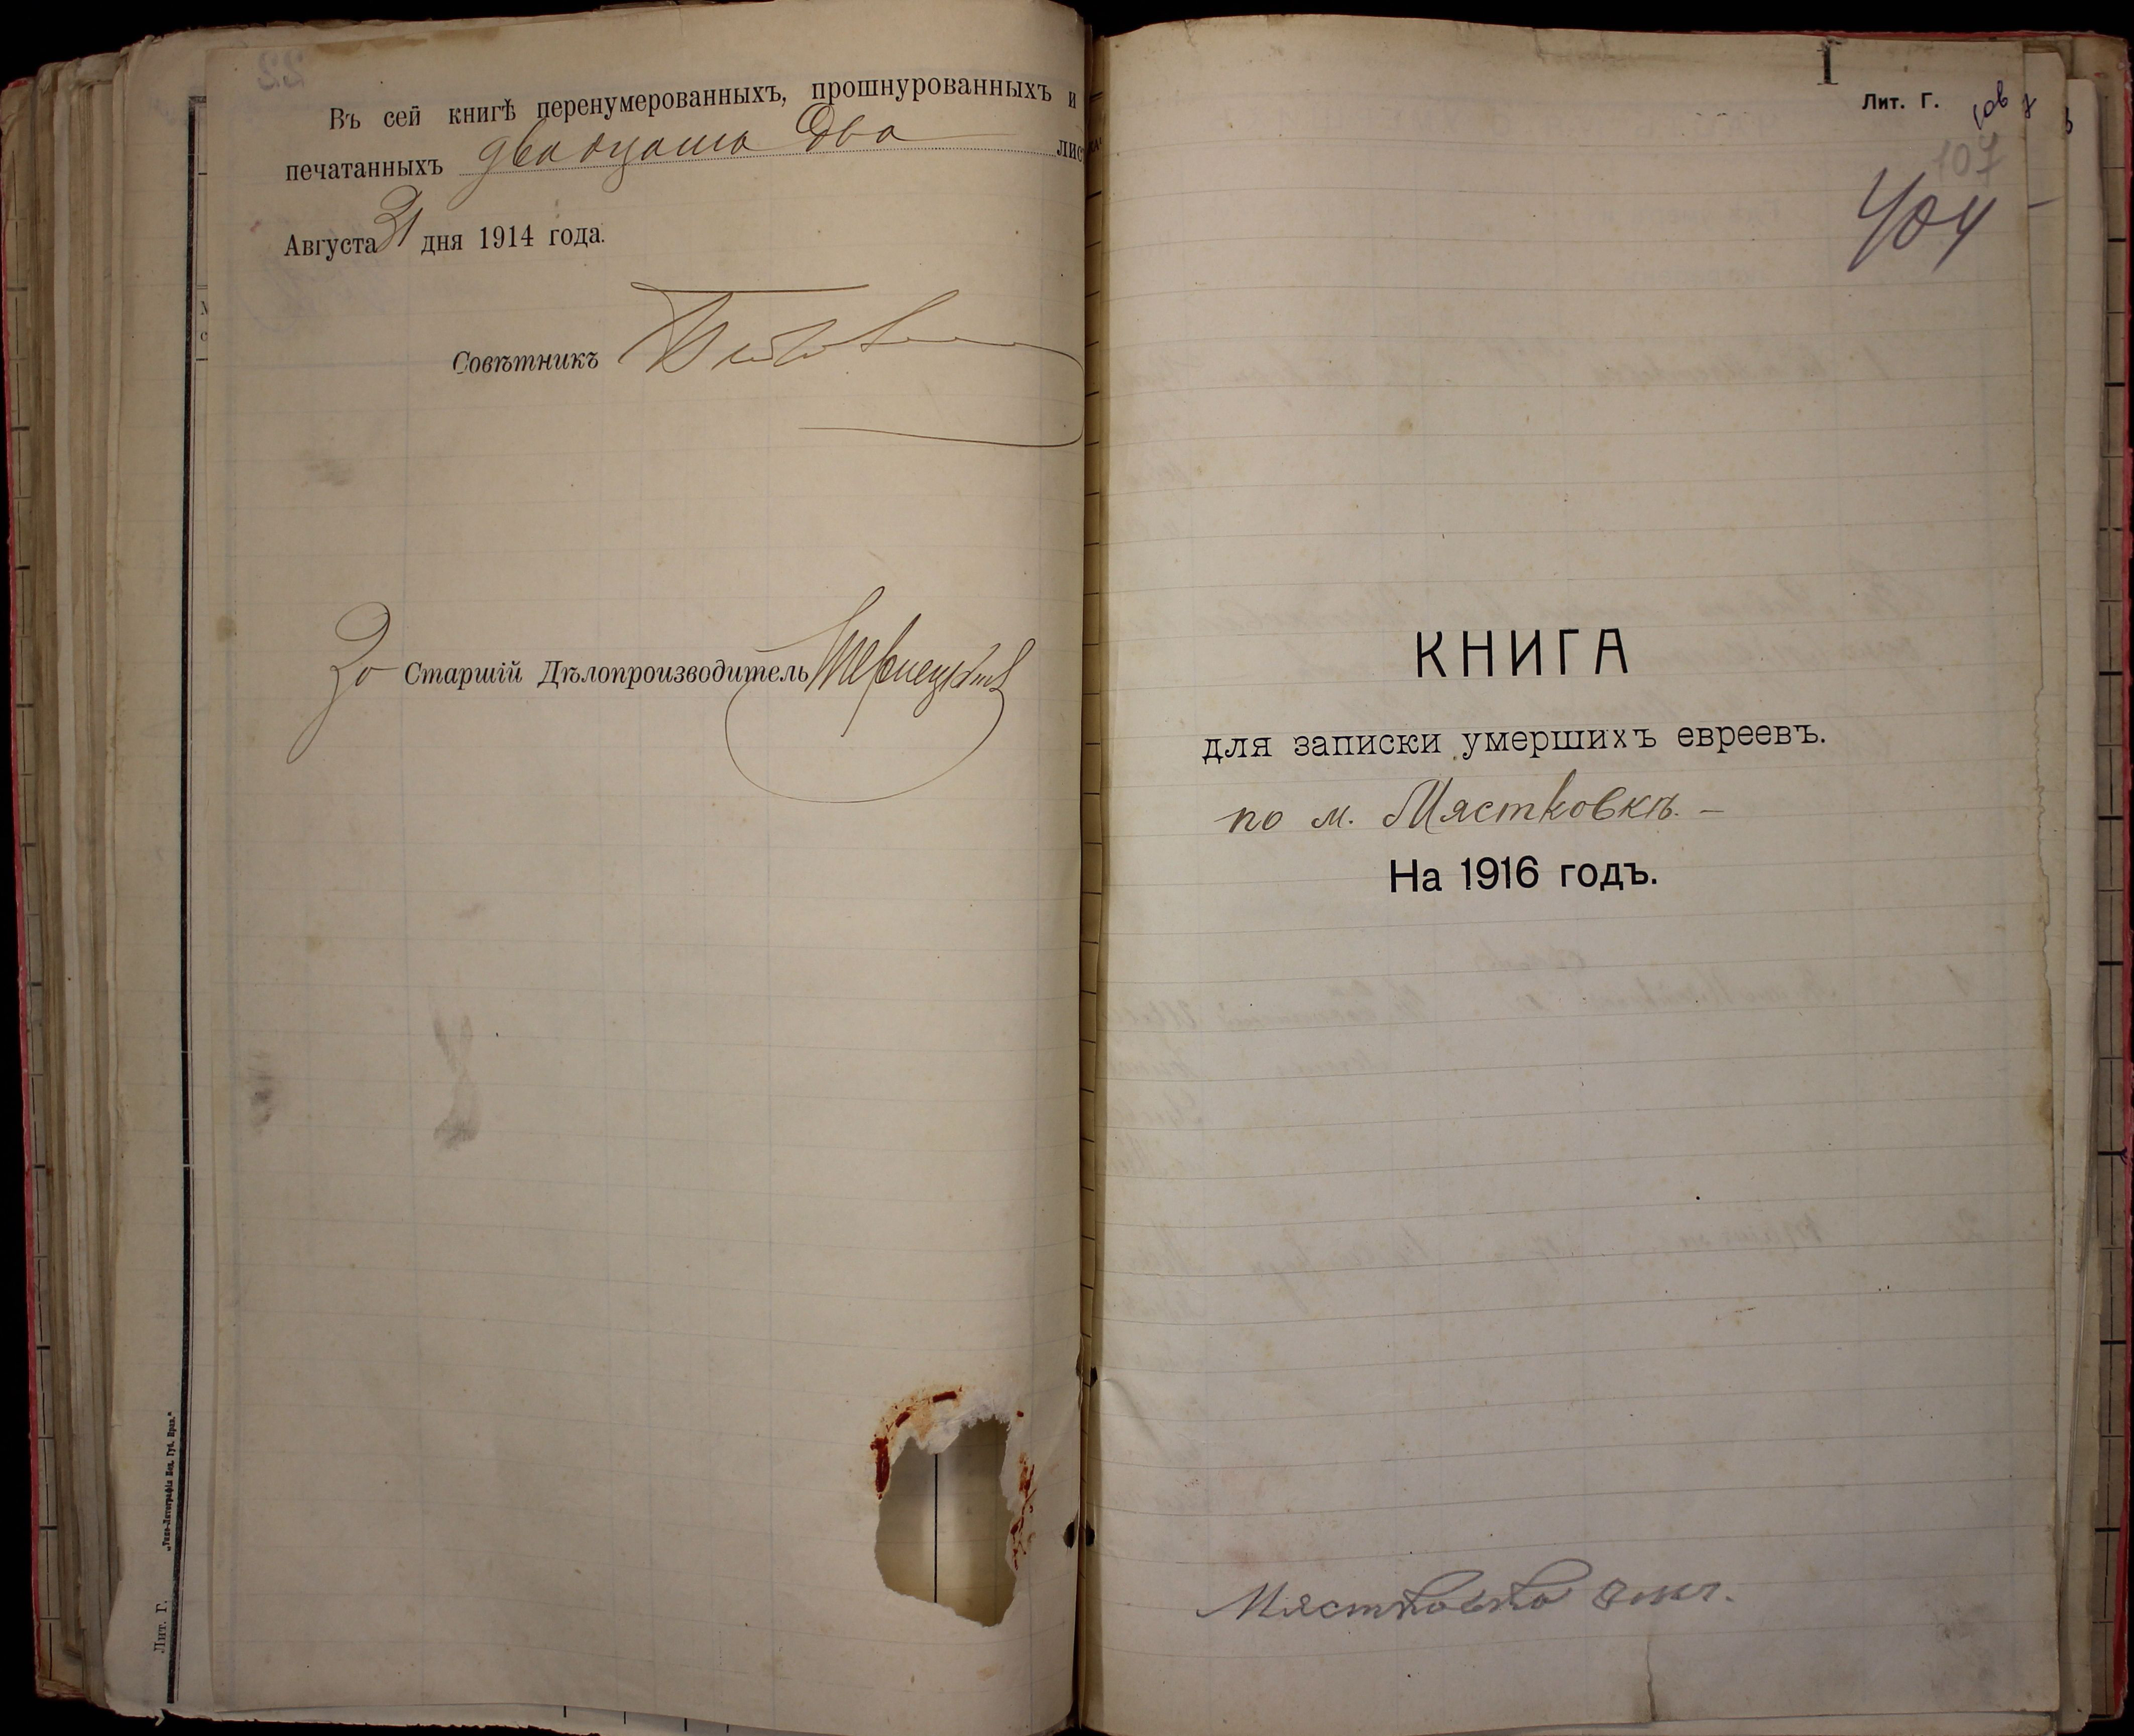 Въ сей книгѣ перенумерованныхъ, прошнурованныхъ и
печатанныхъ двадцать два лис
Августа 31 дня 1914 года.
Совѣтникъ
За Старшій Дѣлопроизводитель
Лит. Г. „Типо-Литографія Под. Губ. Прав.“
I
Лит. Г.
107
404
КНИГА
для записки умершихъ евреевъ.
по м. Мястковкѣ. —
На 1916 годъ.
Мястковка